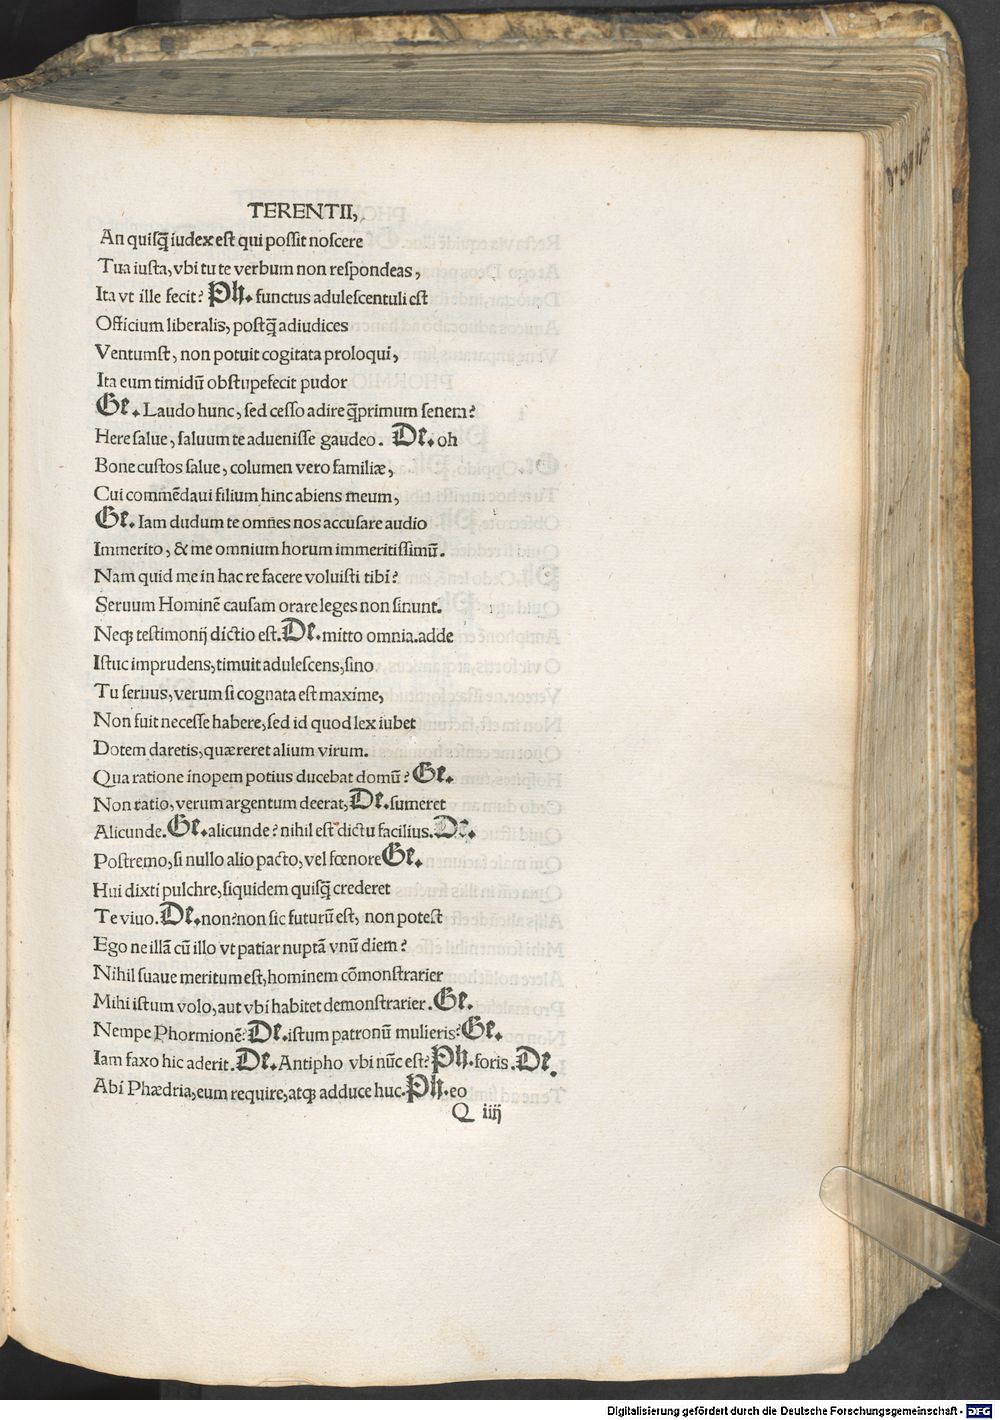 TERENTII,
An quisq̃ iudex est qui possit noscere
Tua iusta, vbi tu te verbum non respondeas,
Ita vt ille fecit? Ph. functus adulescentuli est
Officium liberalis, postq̃ ad iudices
Ventumst, non potuit cogitata proloqui,
Ita eum timidū obstupefecit pudor
Ge. Laudo hunc, sed cesso adire q̃primum senem?
Here salue, saluum te aduenisse gaudeo. De. oh
Bone custos salue, columen vero familiæ,
Cui commēdaui filium hinc abiens meum,
Ge. Iam dudum te omnes nos accusare audio
Immerito, & me omnium horum immeritissimū.
Nam quid me in hac re facere voluisti tibi?
Seruum Hominē causam orare leges non sinunt.
Neq; testimonij dictio est. De. mitto omnia. adde
Istuc imprudens, timuit adulescens, sino
Tu seruus, verum si cognata est maxime,
Non fuit necesse habere, sed id quod lex iubet
Dotem daretis, quæreret alium virum.
Qua ratione inopem potius ducebat domū? Ge.
Non ratio, verum argentum deerat, De. sumeret
Alicunde. Ge. alicunde? nihil est dictu facilius. De.
Postremo, si nullo alio pacto, vel fœnore Ge.
Hui dixti pulchre, siquidem quisq̃ crederet
Te viuo. De. non? non sic futurū est, non potest
Ego ne illā cū illo vt patiar nuptā vnū diem?
Nihil suaue meritum est, hominem cōmonstrarier
Mihi istum volo, aut vbi habitet demonstrarier. Ge.
Nempe Phormionē? De. istum patronū mulieris? Ge.
Iam faxo hic aderit. De. Antipho vbi nūc est? Ph. foris. De.
Abi Phædria, eum require, atq; adduce huc. Ph. eo
Q iiij
Digitalisierung gefördert durch die Deutsche Forschungsgemeinschaft - DFG